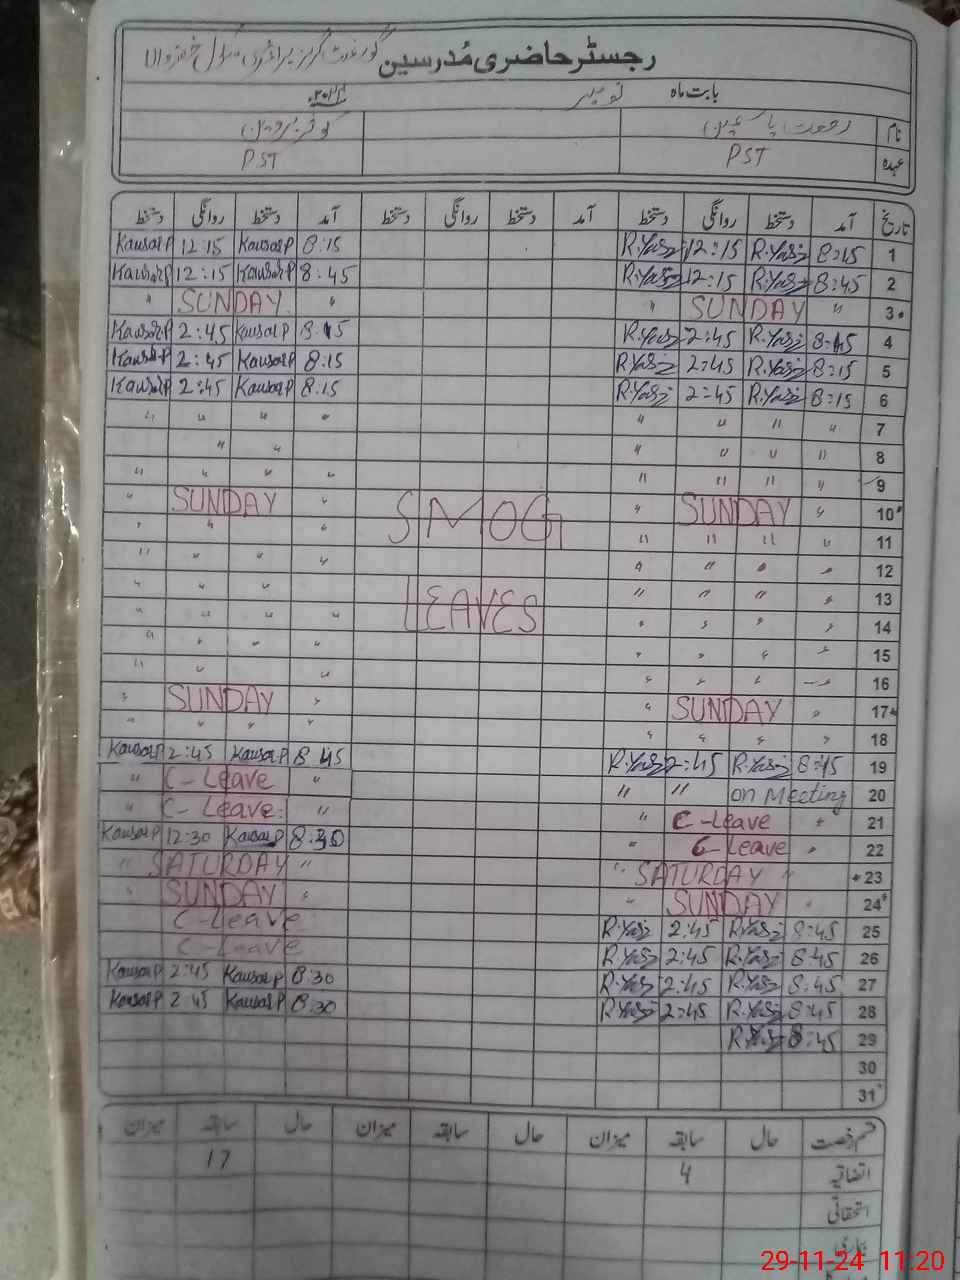 رجسٹر حاضری مُدرسین گورنمنٹ گرلز پرائمری سکول
بابت ماہ نومبر ۲۰۲۴ء
نام رفعت یاسمین کوثر پروین
عہدہ PST PST
تاریخ آمد دستخط روانگی دستخط آمد دستخط روانگی دستخط آمد دستخط روانگی دستخط
Kausar P 12:15 Kausar P 8:15 R.Yas 12:15 R.Yas 8:45 1
Kausar P 12:15 Kausar P 8:45 R.Yas 12:15 R.Yas 8:45 2
" SUNDAY " " SUNDAY " 3
Kausar P 2:45 Kausar P 8:15 R.Yas 2:45 R.Yas 8:45 4
Kausar P 2:45 Kausar P 8:15 R.Yas 2:45 R.Yas 8:15 5
Kausar P 2:45 Kausar P 8:15 R.Yas 2:45 R.Yas 8:15 6
" " " " " " " " 7
" " " " " " 8
" " " " " " " " 9
" SUNDAY " SMOG " SUNDAY " 10
" " " " " " " 11
" " " " " " " " 12
" " " LEAVES " " " " 13
" " " " " " " " 14
" " " " " " " " 15
" " " " " " " 16
" SUNDAY " " SUNDAY " 17
" " " " " " " " 18
Kausar P 2:45 Kausar P 8:45 R.Yas 2:45 R.Yas 8:45 19
" C-Leave " " " on Meeting 20
" C-Leave " " C-Leave " 21
Kausar P 12:30 Kausar P 8:30 " C-Leave " 22
" SATURDAY " " SATURDAY " 23
" SUNDAY " " SUNDAY " 24
C-Leave R.Yas 2:45 R.Yas 8:45 25
C-Leave R.Yas 2:45 R.Yas 8:45 26
Kausar P 2:45 Kausar P 8:30 R.Yas 2:45 R.Yas 8:45 27
Kausar P 2:45 Kausar P 8:30 R.Yas 2:45 R.Yas 8:45 28
R.Yas 8:45 29
30
31
قسم رخصت حال سابقہ میزان حال سابقہ میزان حال سابقہ میزان
اتفاقیہ 4 17
استحقاقی
بیماری
29-11-24 11:20